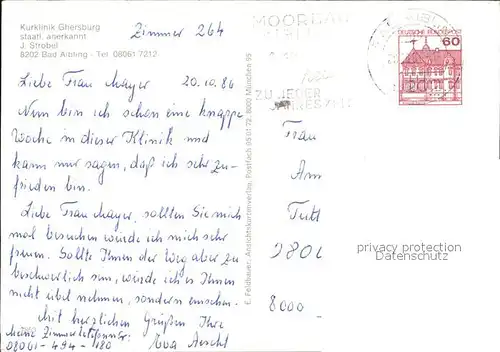 Kurklinik Ghersburg
staatl. anerkannt
J. Strobel
8202 Bad Aibling - Tel. 08061 7212
Zimmer 264
Liebe Frau Mayer 20.10.86
Nun bin ich schon eine knappe
Woche in dieser Klinik und
kann nur sagen, daß ich sehr zu-
frieden bin.
Liebe Frau Mayer, sollten Sie mich
mal besuchen würde ich mich sehr
freuen. Sollte Ihnen der Weg aber zu
beschwerlich sein, würde ich es Ihnen
nicht übel nehmen, sondern
Mit herzlichen Grüßen Ihre
meine Zimmertelefonnr:
08061-494-180 Eva
E. Feldbauer, Ansichtskartenverlag, Postfach 95 01 72, 8000 München 95
MOORBAD
ZU JEDER
JAHRESZEIT
DEUTSCHE BUNDESPOST
60
Frau
Am
8000
privacy protection
Datenschutz